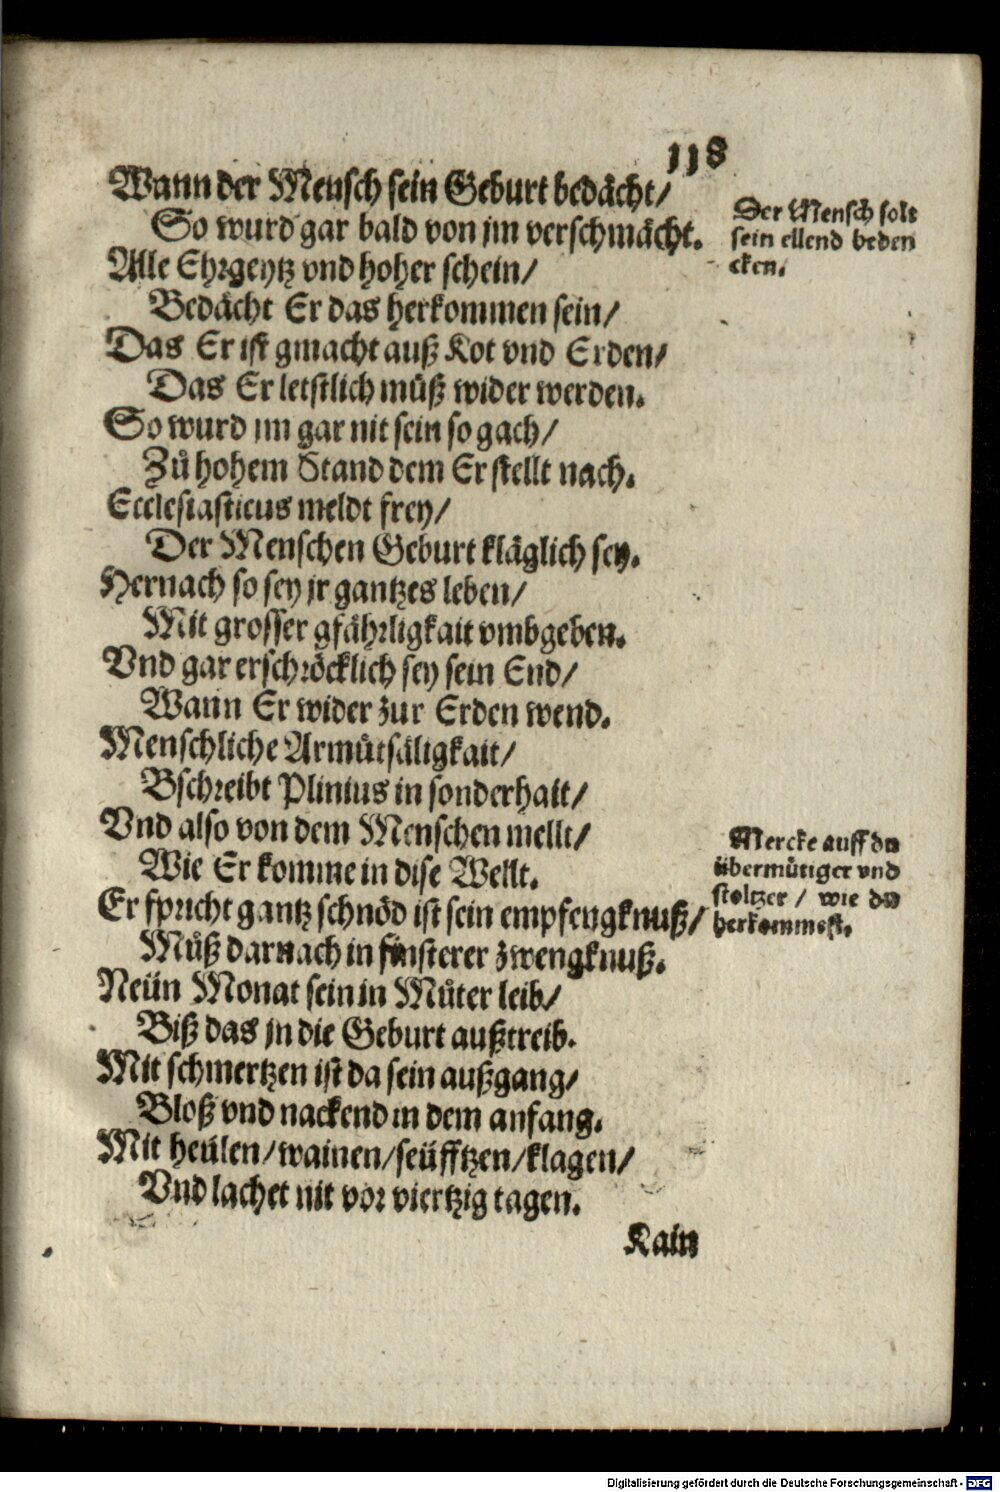 118
Wann der Mensch sein Geburt bedächt/
So wurd gar bald von jm verschmächt.
Alle Ehrgeytz vnd hoher schein/
Bedächt Er das herkommen sein/
Das Er ist gmacht auß Kot vnd Erden/
Das Er letstlich müß wider werden.
So wurd jm gar nit sein so gach/
Zů hohem Stand dem Er stellt nach.
Ecclesiasticus meldt frey/
Der Menschen Geburt kläglich sey.
Hernach so sey jr gantzes leben/
Mit grosser gfährligkait vmbgeben.
Vnd gar erschröcklich sey sein End/
Wann Er wider zur Erden wend.
Menschliche Armůtsäligkait/
Bschreibt Plinius in sonderhait/
Vnd also von dem Menschen mellt/
Wie Er komme in dise Wellt.
Er spricht gantz schnöd ist sein empfengknuß/
Můß darnach in finsterer zwengknuß.
Neün Monat sein in Můter leib/
Biß das jn die Geburt außtreib.
Mit schmertzen ist da sein außgang/
Bloß vnd nackend in dem anfang.
Mit heülen/wainen/seüfftzen/klagen/
Vnd lachet nit vor viertzig tagen.
Kain
Der Mensch solt
sein ellend beden
cken.
Mercke auff du
übermütiger vnd
stoltzer / wie du
herkommest.
Digitalisierung gefördert durch die Deutsche Forschungsgemeinschaft - DFG